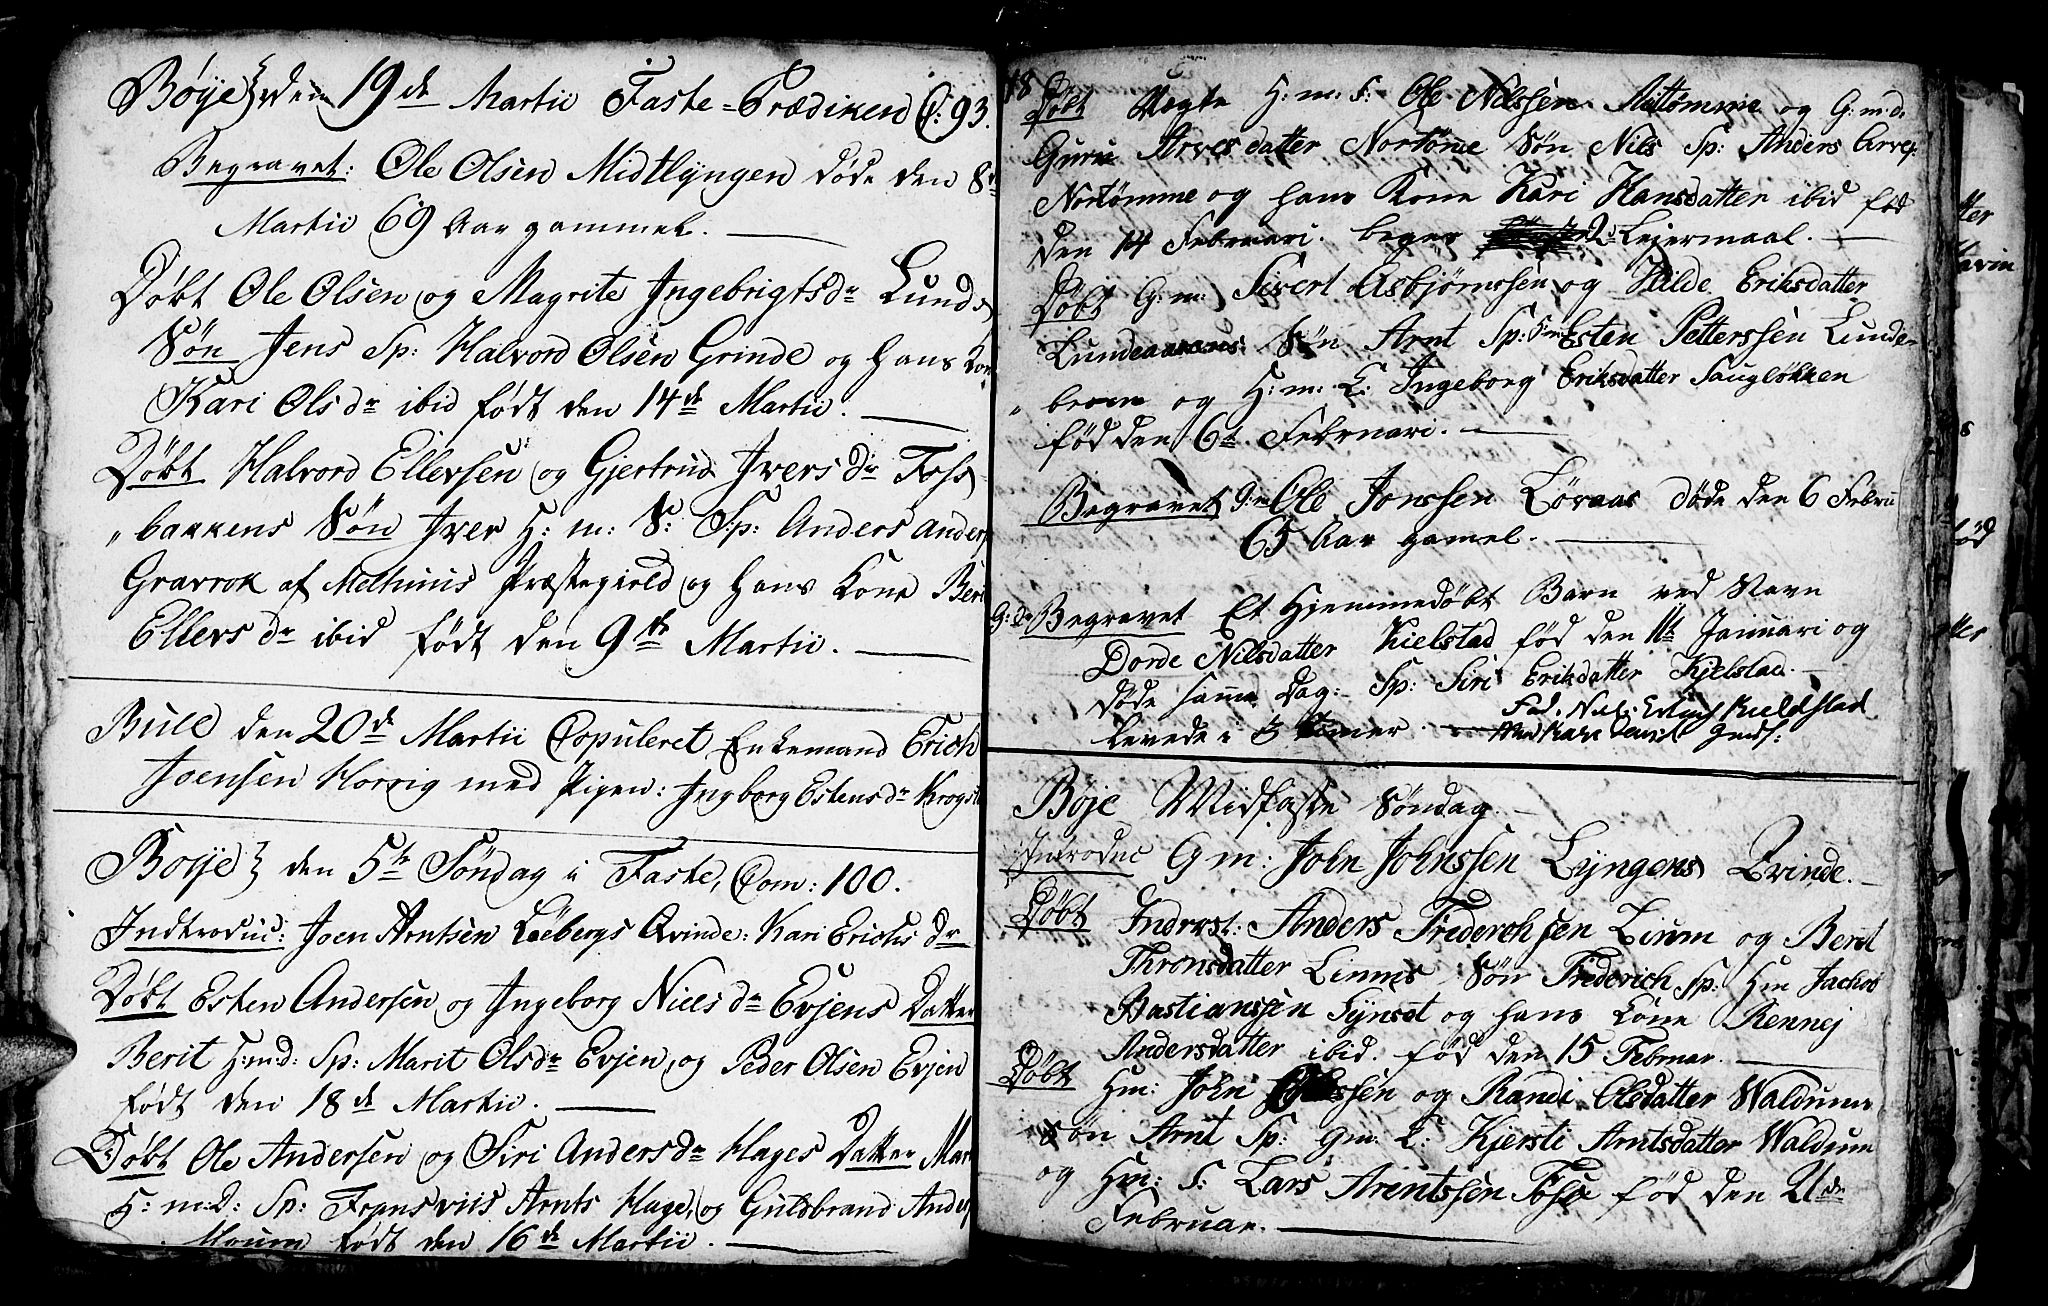 Bøye den 19de Martii Faste-Prædiken C: 93.
Begravet: Ole Olsen Midtlyngen døde den 8de
Martii 69 Aar gammel.
Døbt Ole Olsen og Magrite Ingebrigtsdr Lunds
Søn Jens Sp: Halvord Olsen Grinde og hans Kone
Kari Olsdr ibid født den 14de Martii.
Døbt Halvord Ellevsen og Gjertrud Ivers dr Foss
„bakkens Søn Iver H: m: S: Sp: Anders Anders
Gravrok af Melhuus Præstegield og hans Kone Beri
Ellers dr ibid født den 9de Martii.
Buld den 20de Martii Copuleret Enkemand Erich
Joensen Horrig med Pigen: Ingborg Estensdr Krogst
Boye den 5te Søndag i Faste, Com: 100.
Indtroduc: Joen Arntsen Løebergs Qvinde: Kari Erichs dr
Døbt Esten Andersen og Ingeborg Niels dr Evjens Datter
Berit H:m:d: Sp: Marit Olsdr Evjen, og Peder Olsen Evjen
født den 18de Martii.
Døbt Ole Andersen og Siri Andersdr Hages Datter Mar
H: m:D: Sp: Arnts Hage, og Guldbrand Anders
Moum født den 16de Martii.
18
Døbt Uegte H: m: S: Ole Nilssen og G: m: d:
Guru Arvesdatter Nortømme Søn Nils Sp: Anders Arves:
Nortømme og hans Kone Kari Hansdatter ibid fød
den 14 Februari. beges Lejermaal.
Døbt G: m: Sivert Asbjørnssen og Hilde Eriksdatter
Søn Arnt Sp: H:m: Esten Petterssen Lunde-
„ og H: m: L: Ingeborg Eriksdatter Saugløkken
fød den 6te Februari.
Begravet G:m Ole Jonssen Løraas døde den 6 Febru
65 Aar gamel.
G: d: Begravet Et Hjemmedøbt Barn ved Navn
Dorde Nilsdatter Kielstad fød den 11te Januari og
døde samme Dag: Sp: Siri Eriksdatter Kjelstad
levede i 3 Timer.
Fad. Nils Erichs Kieldstad
Boje Midfaste Søndag.
Introduc G m: John Johnssen Lyngens Qvinde.
Døbt Indrost: Anders Frederchsen Linm og Berit
Thronsdatter Linnes Søn Frederich Sp: Hm Jachob
Bastianssen Synset og hans Kone Rennej
Andersdatter ibid. fød den 15 Februar.
Døbt Hm: John og Randi Olsdatter Waldum
Søn Arnt Sp: Gm. L: Kjersti Arntsdatter Waldum
og Hm: S: Lars Arentssen Foss fød den 21de
Februar.